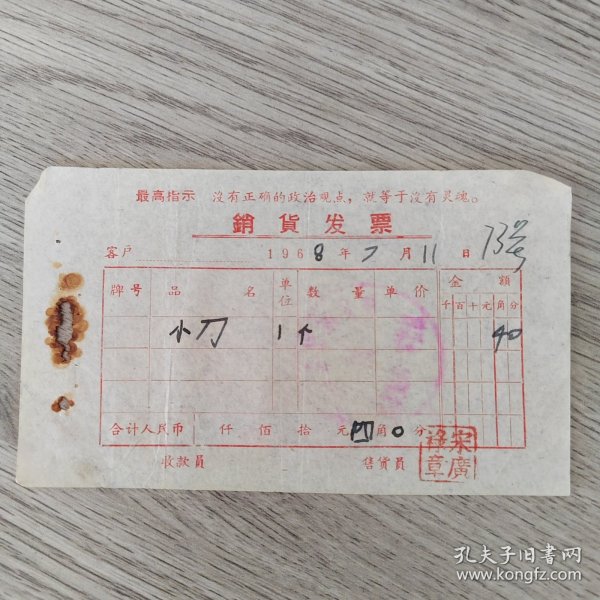 最高指示 沒有正确的政治观点，就等于沒有灵魂。
銷貨发票
客戶 1968年7月11日 13号
牌号 品名 单位 数量 单价 金額
千百十元角分
小刀 1个 40
合计人民币 仟 佰 拾 元四角0分
收款員 售貨員
孔夫子旧书网
www.kongfz.com